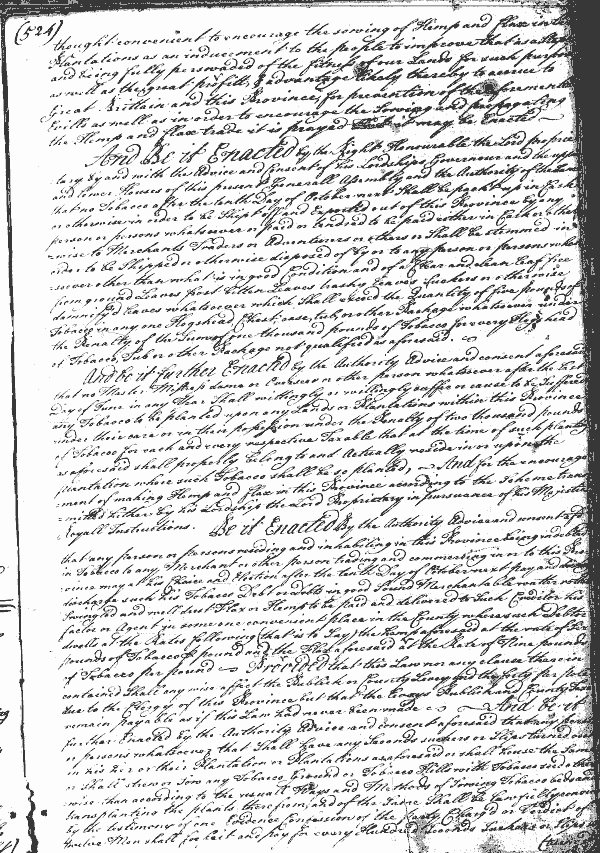 (524)
thought convenient to encourage the sowing of Hemp and Flax in the
Plantations as an inducement to the people to improve that as a Staple
and being fully perswaded of the fitness of our Lands for such purpose
as well as the great profitt & advantage likely thereby to accrue to
Great Brittain and this Province, for prevention of the aforementd
Evills as well as in order to encourage the Sowing and propagating
the Hemp and Flax trade it is prayed that it may be Enacted
And Be it Enacted by the Right Honourable the Lord proprie
tary by and with the Advice and Consent of his Lordships Governour and the upper
and lower Houses of this present Generall Assembly and the Authority of the same
that no Tobacco after the tenth day of October next Shall be packt up in Cask
or otherwise in order to be Shipt off and Exported out of this Province by any
person or persons whatsoever or paid or tendred to be paid either in Cask or other
wise to Merchants Traders or Adventurers or others or Shall be stemmed in
order to be Shipped or otherwise disposed of by or to any person or persons what
soever other than what is in good Condition and of a Clear and clean leaf free
from ground Leaves frost bitten Leaves trashy Leaves Suckers or otherwise
damnified Leaves whatsoever which Shall exceed the Quantity of five pounds of
Tobacco in any one Hogshead Chest case, tub, or other Package whatsoever under
the Penalty of the Sum of one thousand pounds of Tobacco for every Hogshead
of Tobacco, Tub or other Package not qualified as aforesaid.
And be it further Enacted by the Authority Advice and consent aforesaid
that no Master Mistress dame or Overseer or other person whatsoever after the last
Day of June in any Year Shall wittingly or willingly suffer or cause to be
any Tobacco to be planted upon any Lands or Plantations within this Province
under their care or in their possession under the Penalty of two thousand pounds
of Tobacco for each and every respective Taxable that at the time of such planting
as aforesaid shall properly belong to and Actually reside in or upon the
plantation where such Tobacco shall be so planted, And for the encourage
ment of making Hemp and Flax in this Province according to the Scheme trans
=mitted hither by his Lordship the Lord Proprietary in pursuance of his Majestys
Royall Instructions. Be it Enacted by the Authority Advice and consent afsd
that any person or persons residing and inhabiting in this Province being indebted
in Tobacco to any Merchant or other person trading and commercing in or to this Pro
vince may at his Choice and Election after the tenth Day of October next pay and
discharge such his Tobacco Debt or debts in good Sound Merchantable
Swingled and well drest Flax or Hemp to be paid and delivered to Such Creditor his
Factor or Agent in some one convenient place in the County where such Debtor
dwells at the Rates following (that is to Say) the Hemp aforesaid at the rate of
pounds of Tobacco pr pound and the Flax aforesaid at the Rate of Nine pounds
of Tobacco per pound Provided that this Law nor any clause therein
contained Shall any wise affect the Publick or County Levy and the forty per pole
due to the Clergy of this Province but that the Clergys Publick and County
remain payable as if this Law had never been made And be it
further Enacted by the Authority Advice and consent aforesaid that any person
or persons whatsoever that Shall have any Seconds suckers or Slips turned out
in his her or their Plantation or Plantations as aforesaid or shall House the Same
or Shall strew or Sow any Tobacco Ground or Tobacco Hills with Tobacco seed other
wise than according to the usuall Ways and Methods of Sowing Tobacco beds and
transplanting the plants therefrom, and of the Same Shall be lawfully convict
by the testimony of one Evidence Confession of the party Charg'd or Verdict of
twelve Men shall forfeit and pay for every Hundred Seconds Suckers or Slips